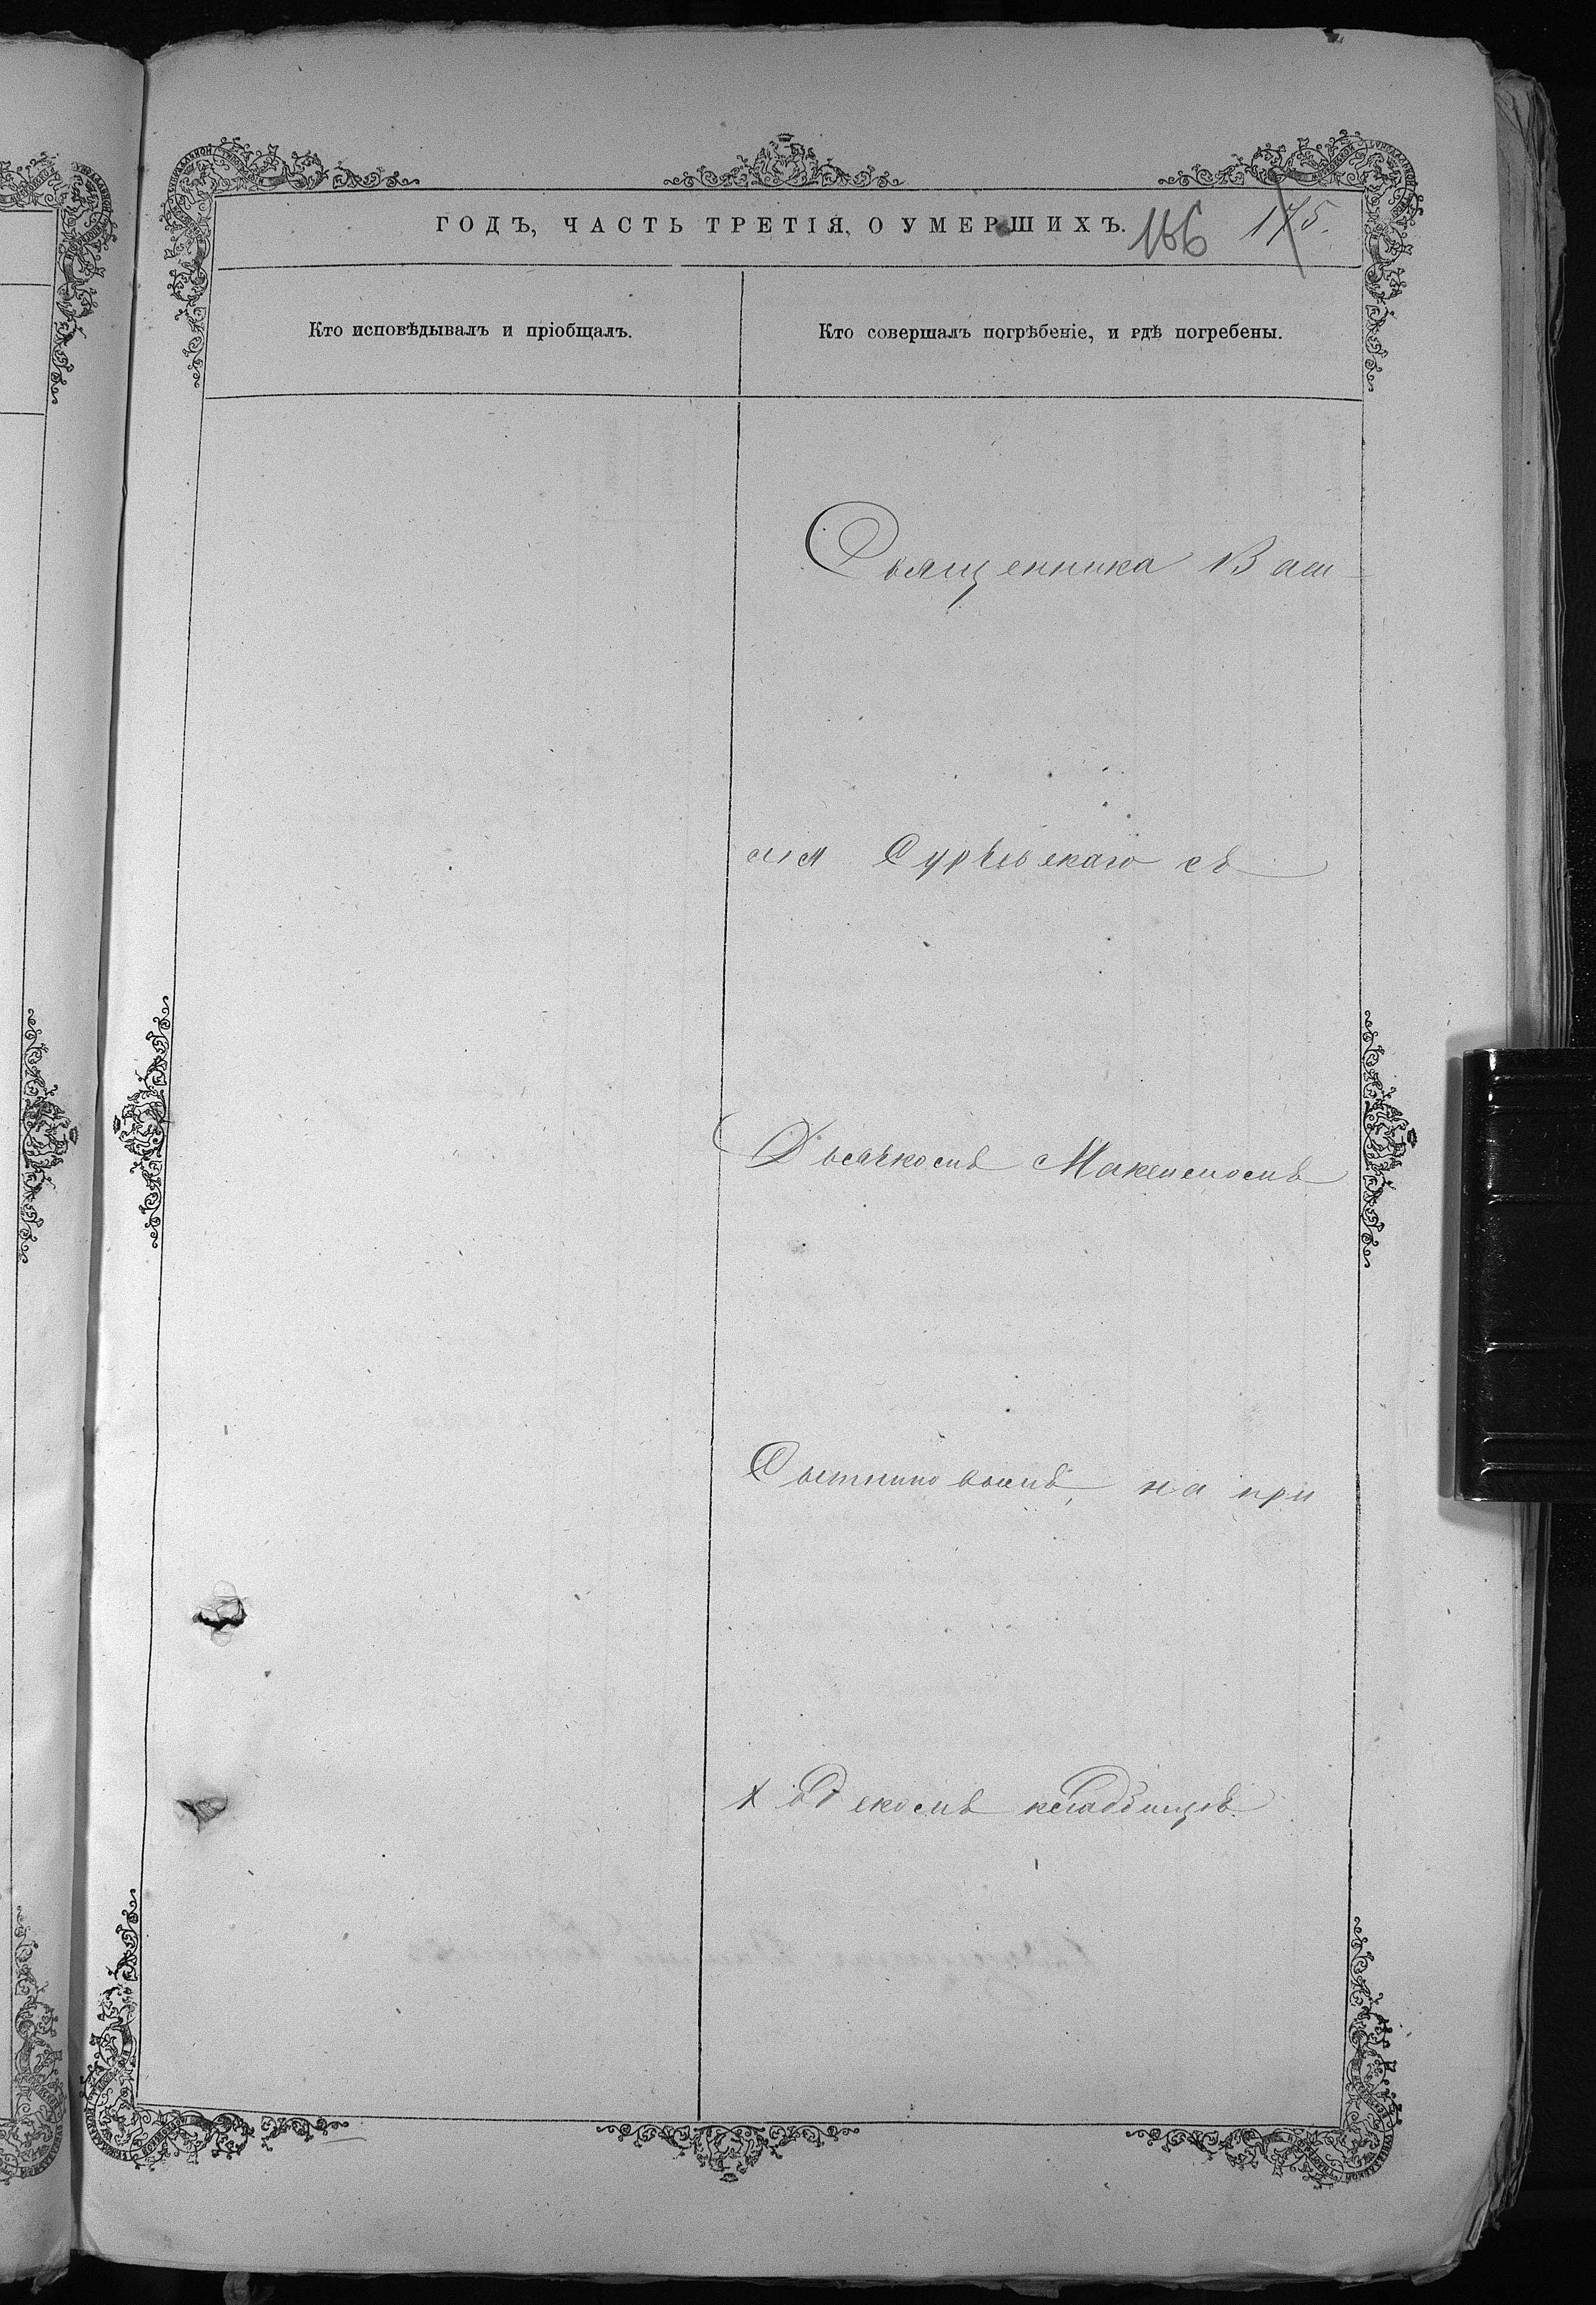 ГОДЪ, ЧАСТЬ ТРЕТІЯ, О УМЕРШИХЪ.
166 175.
Кто исповѣдывалъ и пріобщалъ.
Кто совершалъ погрѣбеніе, и гдѣ погребены.
Священника Васи-
лія съ
Дьячкомъ
на при
ходскомъ кладбищѣ.